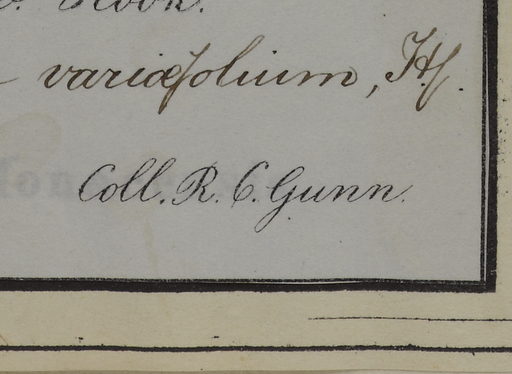 Hook.
variæfolium, Hf.
Coll. R. C. Gunn.